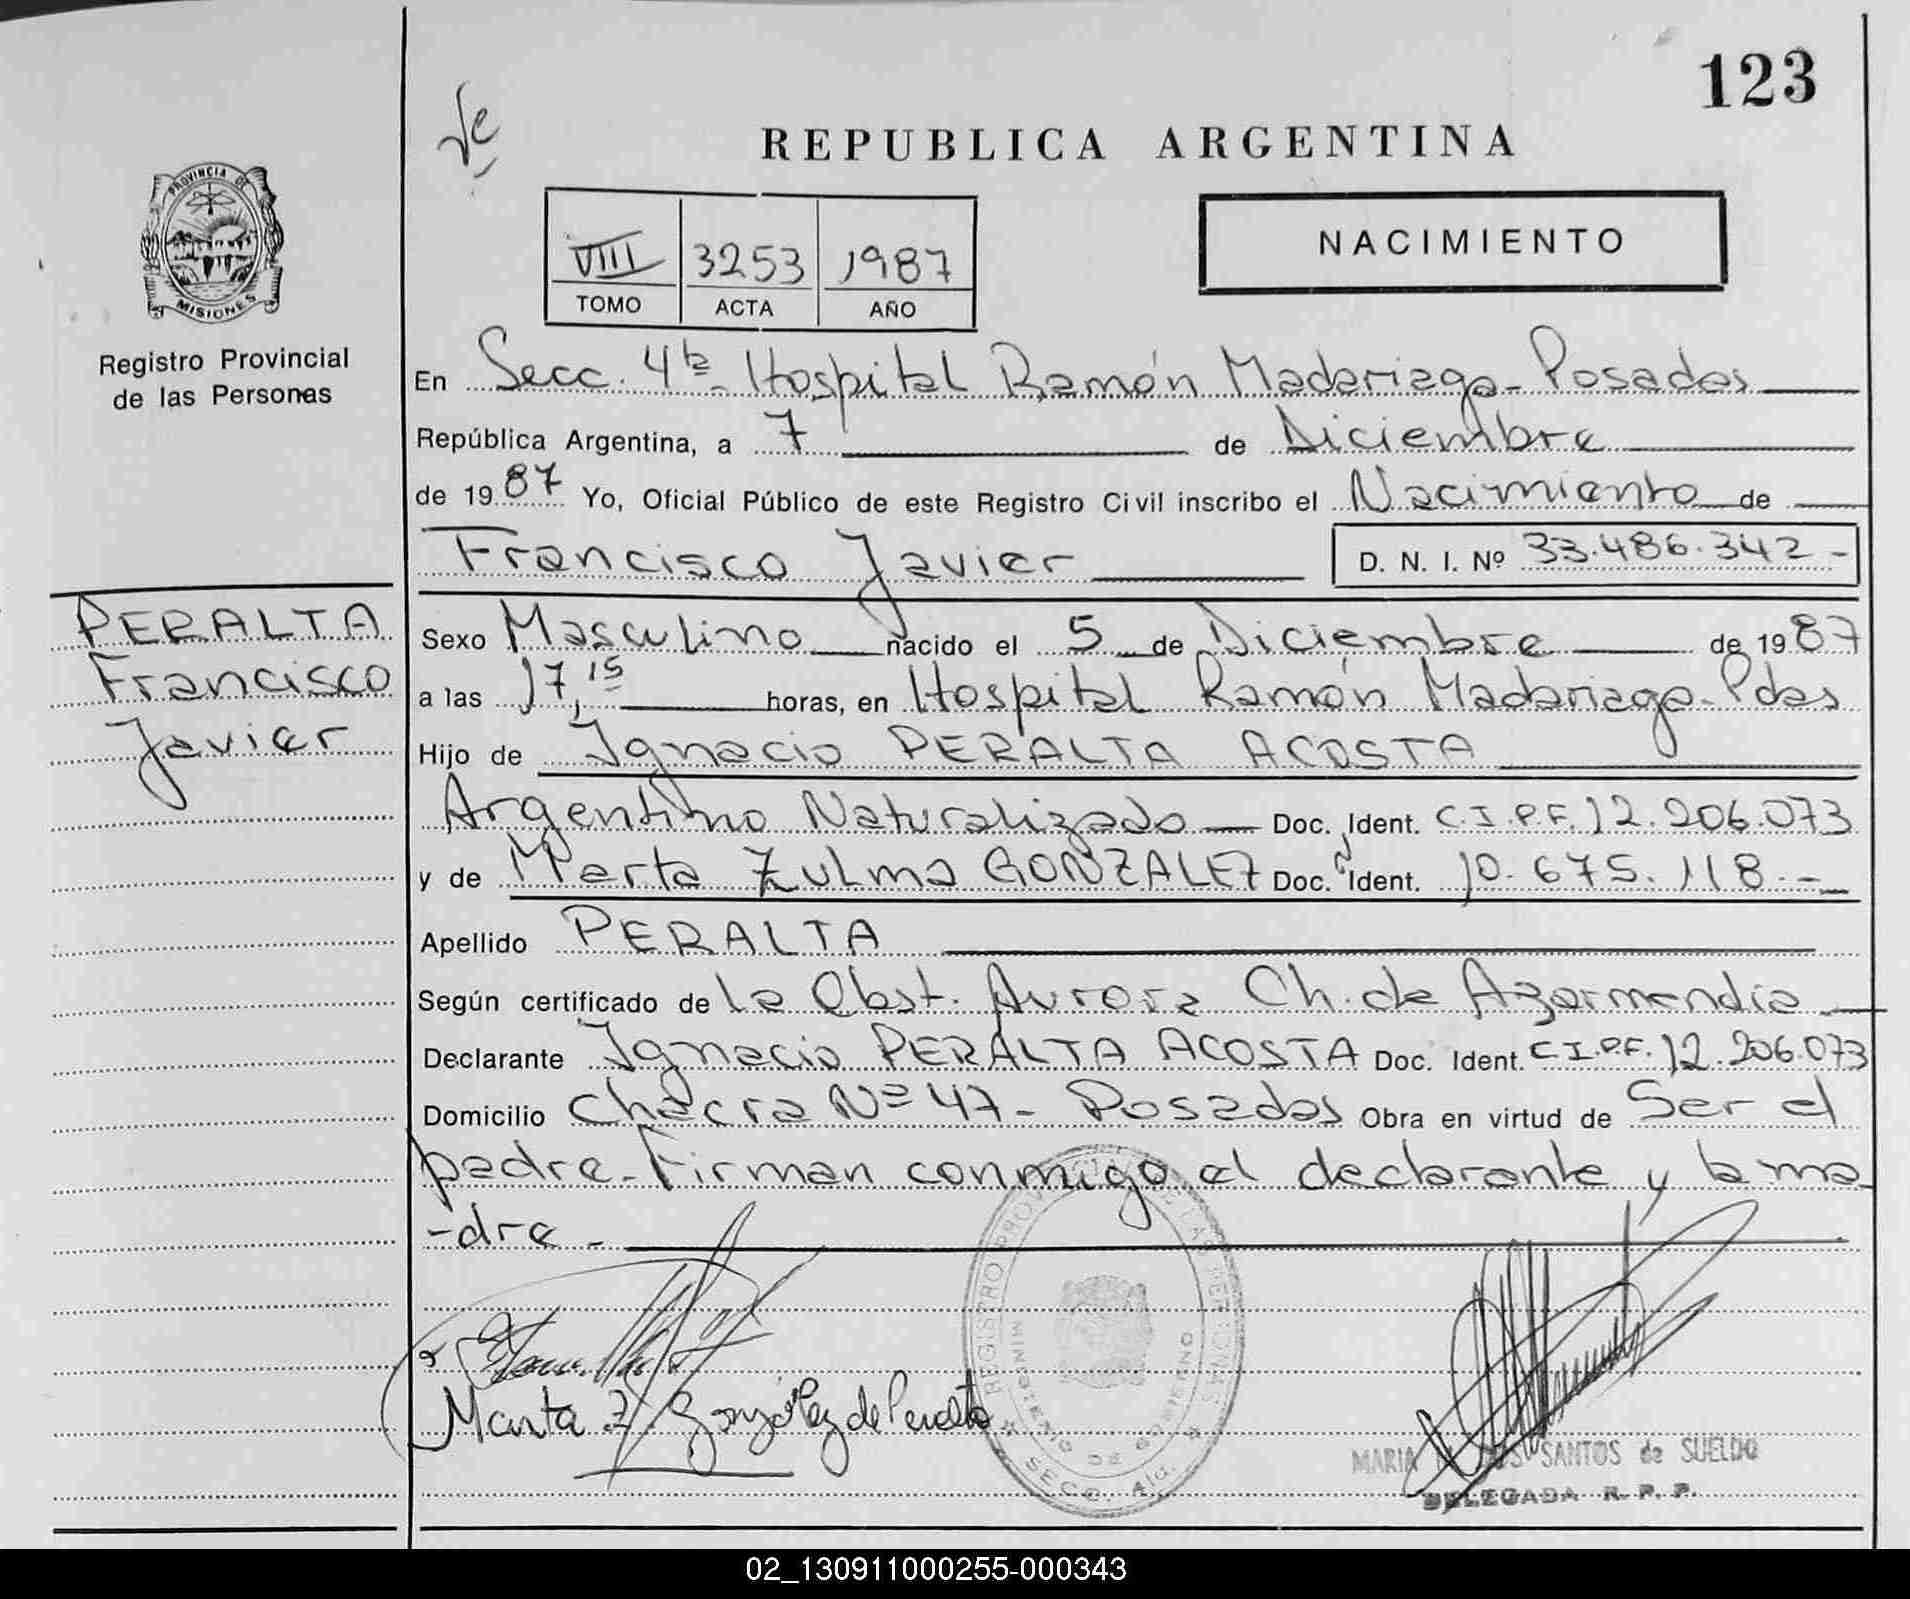 123
REPUBLICA ARGENTINA
PROVINCIA DE
MISIONES
Registro Provincial
de las Personas
VIII 3253 1987
TOMO ACTA AÑO
NACIMIENTO
En Secc. 4ta Hospital Ramón Madariaga - Posadas
República Argentina, a 7 de Diciembre
de 1987 Yo, Oficial Público de este Registro Civil inscribo el Nacimiento de
Francisco Javier D. N. I. Nº 33.486.342 -
PERALTA
Francisco
Javier
Sexo Masculino nacido el 5 de Diciembre de 1987
a las 17,15 horas, en Hospital Ramón Madariaga - Pdas
Hijo de Ignacio PERALTA ACOSTA
Argentino Naturalizado Doc. Ident. C.I.P.F. 12.206.073
y de Marta Zulma GONZALEZ Doc. Ident. 10.675.118.-
Apellido PERALTA
Según certificado de la Obst. Aurora Ch. de Azarmendia
Declarante Ignacio PERALTA ACOSTA Doc. Ident. C.I.P.F. 12.206.073
Domicilio Chacra Nº 47 - Posadas Obra en virtud de Ser el
padre - Firman conmigo el declarante y la ma
-dre -
Marta Z González de Peralta
REGISTRO PROVINCIAL DE LAS PERSONAS
MINISTERIO DE GOBIERNO
SECC.
MARIA SANTOS de SUELDO
DELEGADA R. P. P.
02_130911000255-000343